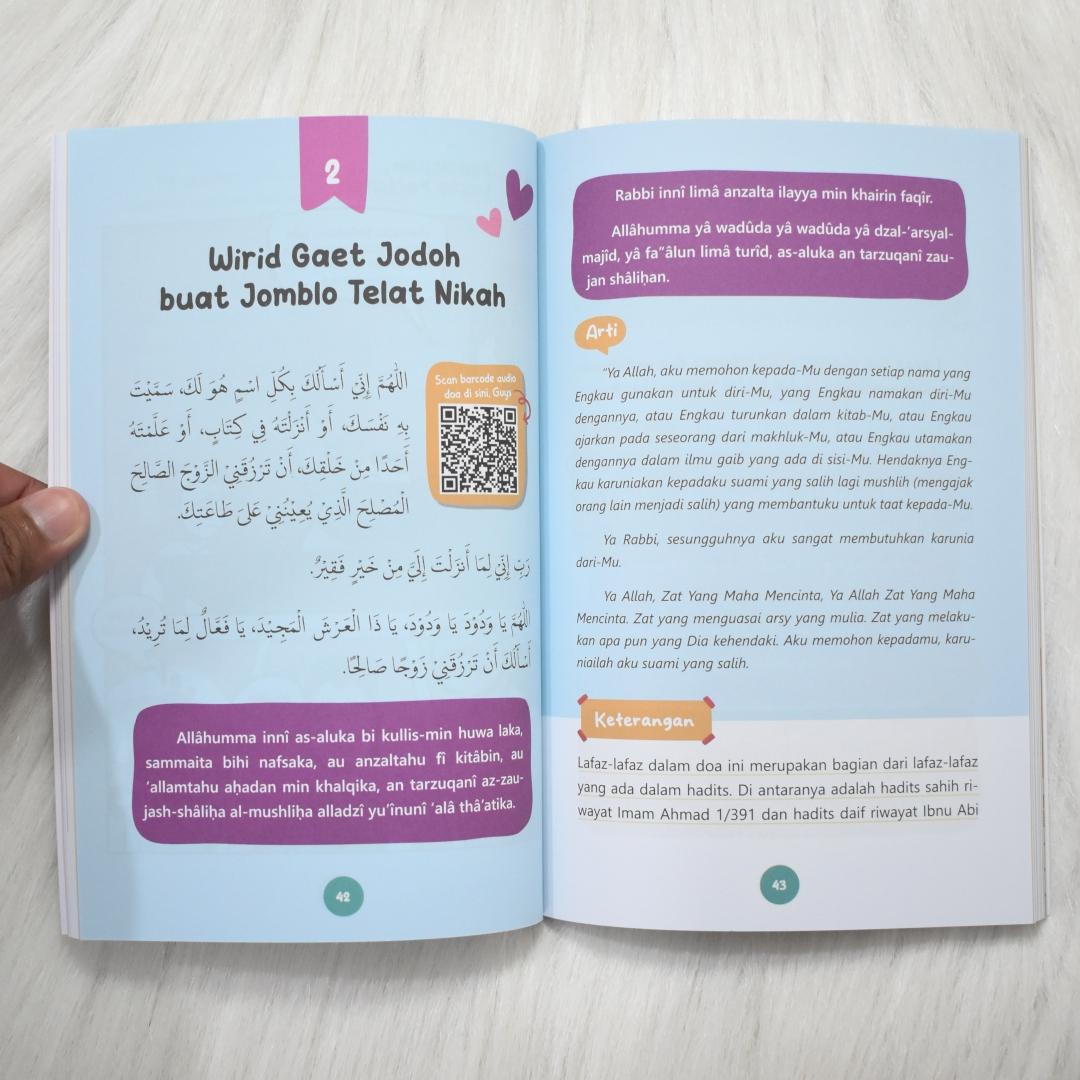 2
Wirid Gaet Jodoh
buat Jomblo Telat Nikah
Scan barcode audio
doa di sini, Guys
اللّٰهُمَّ إِنِّيْ أَسْأَلُكَ بِكُلِّ اسْمٍ هُوَ لَكَ، سَمَّيْتَ
بِهِ نَفْسَكَ، أَوْ أَنْزَلْتَهُ فِي كِتَابٍ، أَوْ عَلَّمْتَهُ
أَحَدًا مِنْ خَلْقِكَ، أَنْ تَرْزُقَنِيْ الزَّوْجَ الصَّالِحَ
الْمُصْلِحَ الَّذِيْ يُعِيْنُنِيْ عَلَى طَاعَتِكَ.
رَبِّ إِنِّيْ لِمَا أَنْزَلْتَ إِلَيَّ مِنْ خَيْرٍ فَقِيْرٌ.
اللّٰهُمَّ يَا وَدُوْدَ يَا وَدُوْدَ، يَا ذَا الْعَرْشِ الْمَجِيْدَ، يَا فَعَّالٌ لِمَا تُرِيْدُ،
أَسْأَلُكَ أَنْ تَرْزُقَنِيْ زَوْجًا صَالِحًا.
Allâhumma innî as-aluka bi kullis-min huwa laka,
sammaita bihi nafsaka, au anzaltahu fî kitâbin, au
‘allamtahu aḥadan min khalqika, an tarzuqanî az-zau-
jash-shâliḥa al-mushliḥa alladzî yu‘înunî ‘alâ thâ‘atika.
42
Rabbi innî limâ anzalta ilayya min khairin faqîr.
Allâhumma yâ wadûda yâ wadûda yâ dzal-‘arsyal-
majîd, yâ fa‘‘âlun limâ turîd, as-aluka an tarzuqanî zau-
jan shâliḥan.
Arti
“Ya Allah, aku memohon kepada-Mu dengan setiap nama yang
Engkau gunakan untuk diri-Mu, yang Engkau namakan diri-Mu
dengannya, atau Engkau turunkan dalam kitab-Mu, atau Engkau
ajarkan pada seseorang dari makhluk-Mu, atau Engkau utamakan
dengannya dalam ilmu gaib yang ada di sisi-Mu. Hendaknya Eng-
kau karuniakan kepadaku suami yang salih lagi mushlih (mengajak
orang lain menjadi salih) yang membantuku untuk taat kepada-Mu.
Ya Rabbi, sesungguhnya aku sangat membutuhkan karunia
dari-Mu.
Ya Allah, Zat Yang Maha Mencinta, Ya Allah Zat Yang Maha
Mencinta. Zat yang menguasai arsy yang mulia. Zat yang melaku-
kan apa pun yang Dia kehendaki. Aku memohon kepadamu, karu-
niailah aku suami yang salih.
Keterangan
Lafaz-lafaz dalam doa ini merupakan bagian dari lafaz-lafaz
yang ada dalam hadits. Di antaranya adalah hadits sahih ri-
wayat Imam Ahmad 1/391 dan hadits daif riwayat Ibnu Abi
43